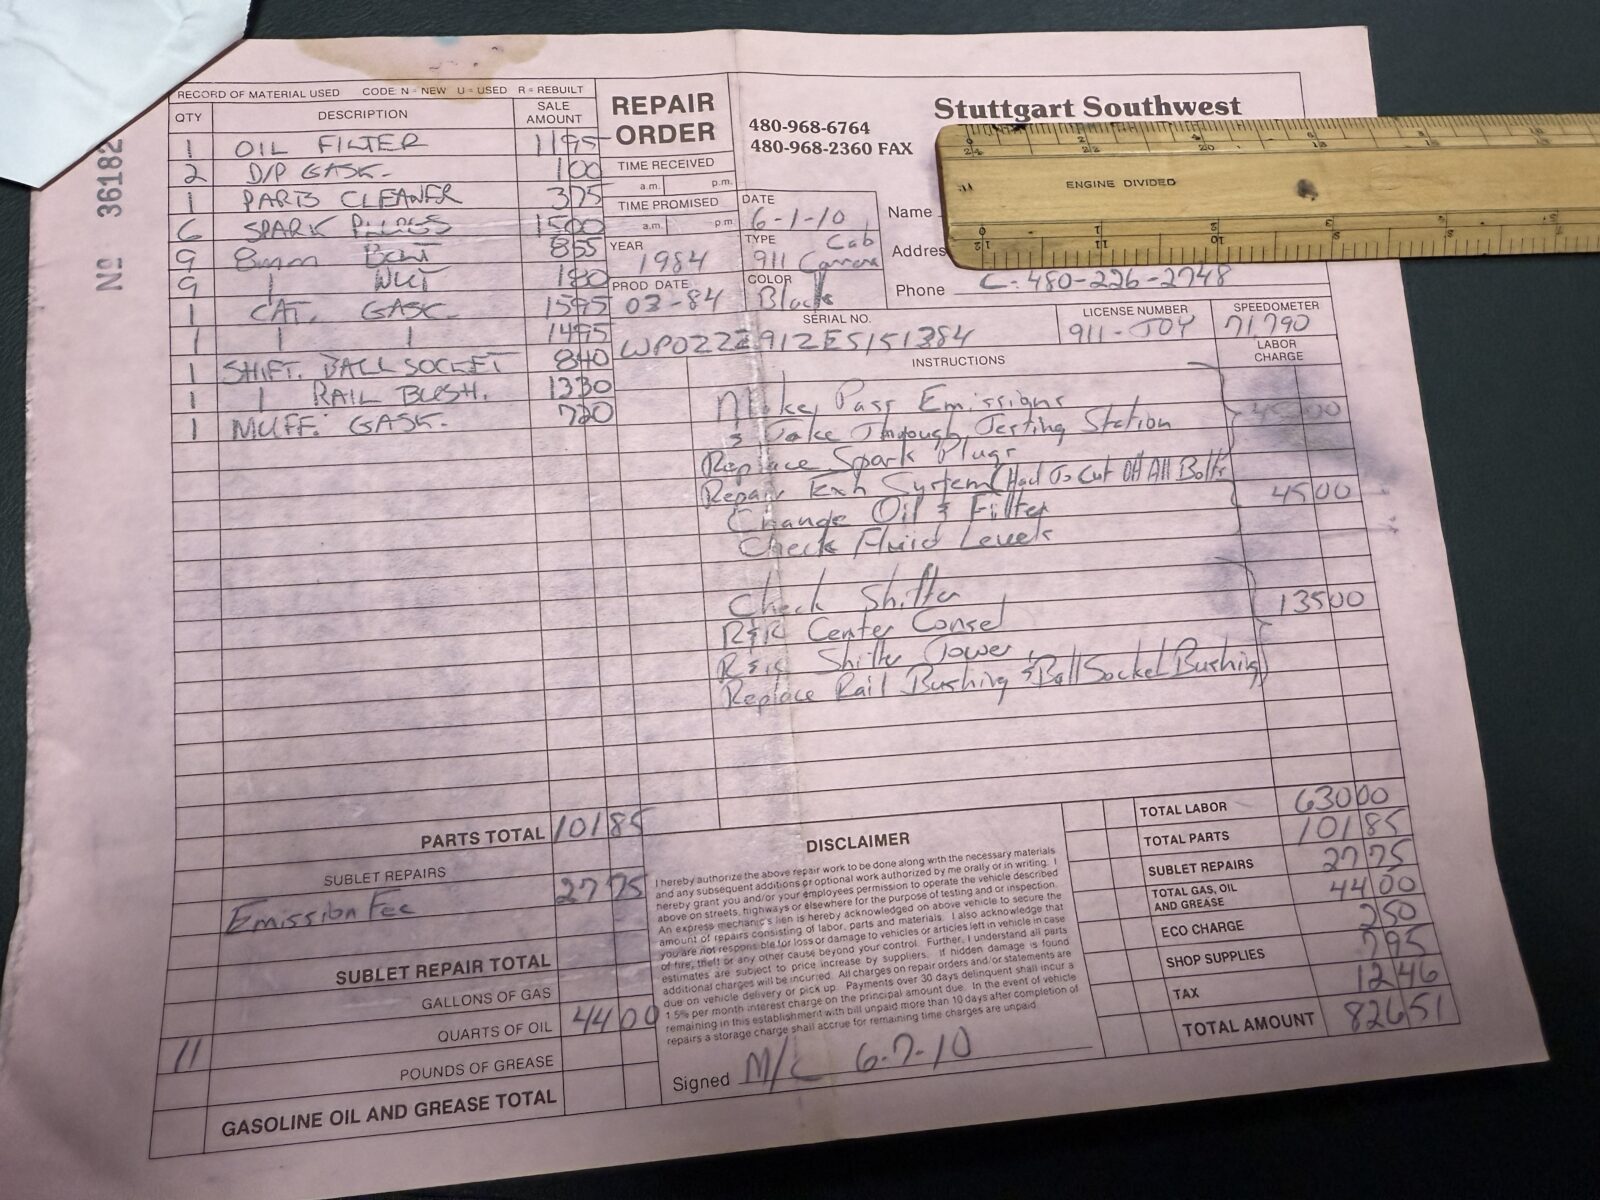 RECORD OF MATERIAL USED CODE: N = NEW U = USED R = REBUILT
QTY DESCRIPTION SALE AMOUNT
1 OIL FILTER 11 95
2 D/P GASK. 1 00
1 PARTS CLEANER 3 75
6 SPARK PLUGS 15 00
9 8mm BOLT 8 55
9 | NUT 1 80
1 CAT. GASK. 15 95
1 | | 14 95
1 SHIFT. BALL SOCKET 8 40
1 | RAIL BUSH. 13 30
1 MUFF. GASK. 7 20
Nº 36182
REPAIR ORDER
Stuttgart Southwest
480-968-6764
480-968-2360 FAX
TIME RECEIVED
a.m. p.m.
TIME PROMISED
a.m. p.m.
DATE
6-1-10
YEAR
1984
TYPE Cab
911 Carrera
PROD DATE
03-84
COLOR
Black
Name
Addres
Phone C-480-226-2748
SERIAL NO.
WP0ZZZ91ZES151384
LICENSE NUMBER
911-JOY
SPEEDOMETER
71790
INSTRUCTIONS
LABOR CHARGE
Make Pass Emissions
& Take Through Testing Station
Replace Spark Plugs
Repair Exh System (Had To Cut Off All Bolts
45 00
Change Oil & Filter
Check Fluid Levels
Check Shifter
135 00
R&R Center Consel
R&R Shifter Tower
Replace Rail Bushing & Ball Socket Bushing
PARTS TOTAL 101 85
SUBLET REPAIRS
Emission Fee 27 75
SUBLET REPAIR TOTAL
GALLONS OF GAS
11 QUARTS OF OIL 44 00
POUNDS OF GREASE
GASOLINE OIL AND GREASE TOTAL
DISCLAIMER
I hereby authorize the above repair work to be done along with the necessary materials
and any subsequent additions or optional work authorized by me orally or in writing. I
hereby grant you and/or your employees permission to operate the vehicle described
above on streets, highways or elsewhere for the purpose of testing and/or inspection.
An express mechanic's lien is hereby acknowledged on above vehicle to secure the
amount of repairs consisting of labor, parts and materials. I also acknowledge that
you are not responsible for loss or damage to vehicles or articles left in vehicle in case
of fire, theft or any other cause beyond your control. Further, I understand all parts
estimates are subject to price increase by suppliers. If hidden damage is found
additional charges will be incurred. All charges on repair orders and/or statements are
due on vehicle delivery or pick up. Payments over 30 days delinquent shall incur a
1.5% per month interest charge on the principal amount due. In the event of vehicle
remaining in this establishment with bill unpaid more than 10 days after completion of
repairs a storage charge shall accrue for remaining time charges are unpaid.
Signed M/C 6-7-10
TOTAL LABOR 630 00
TOTAL PARTS 101 85
SUBLET REPAIRS 27 75
TOTAL GAS, OIL AND GREASE 44 00
ECO CHARGE 2 50
SHOP SUPPLIES 7 95
TAX 12 46
TOTAL AMOUNT 826 51
ENGINE DIVIDED